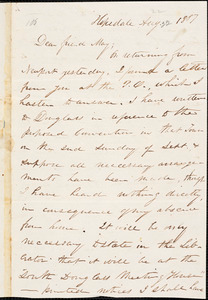 Hopedale Aug 30 1857
Dear friend May,
In returning from
Newport yesterday, I found a letter
from you at the P.O., which I
hasten to answer. I have written
to Douglass in reference to the
proposed Convention in that town
on the 2nd Sunday of Sept &
suppose all necessary arrange-
ments have been made, though
I have heard nothing directly,
in consequence of my absence
from home. It will be very
necessary to state in the Lib-
erator that it will be at the
South Douglass Meeting House
— printed notices I should